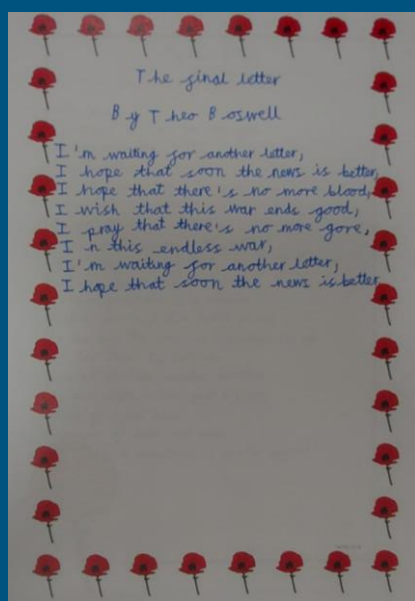 The final letter
By Theo Boswell
I'm waiting for another letter,
I hope that soon the news is better,
I hope that there's no more blood,
I wish that this war ends good,
I pray that there's no more gore,
In this endless war,
I'm waiting for another letter,
I hope that soon the news is better